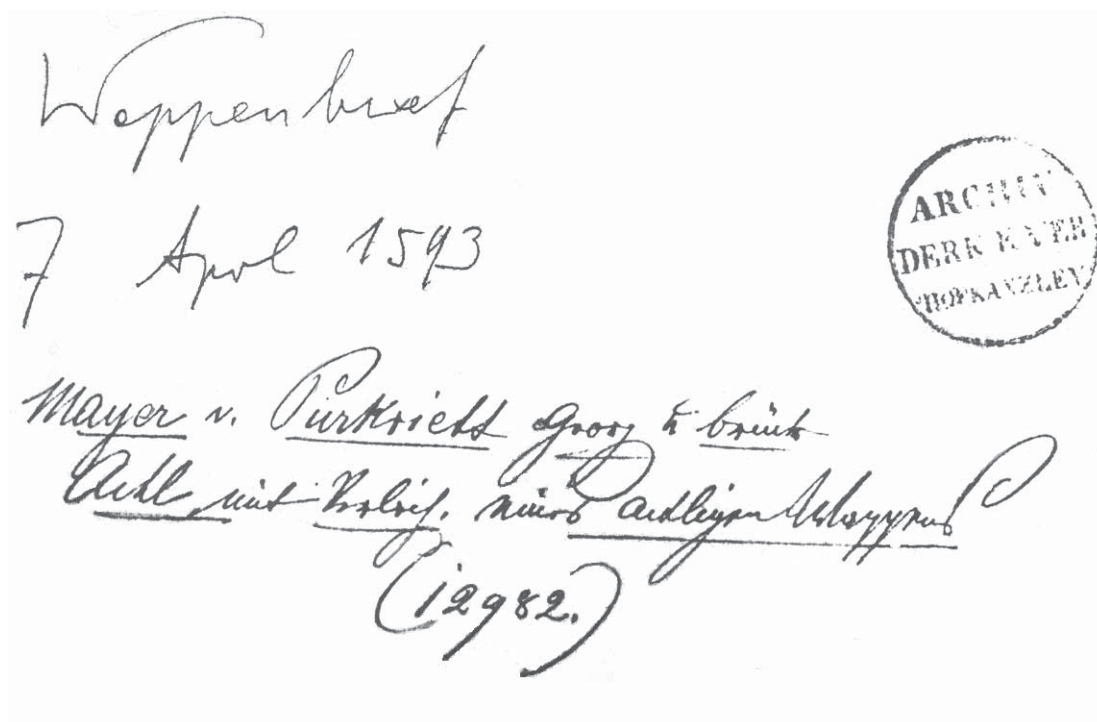 Wappenbrief
7 April 1593
ARCHIV
DER K K VER
HOFKANZLEY
Mayer v. Purkriett Georg &
Adl mit Verleih. eines adligen Wappens
(12982.)